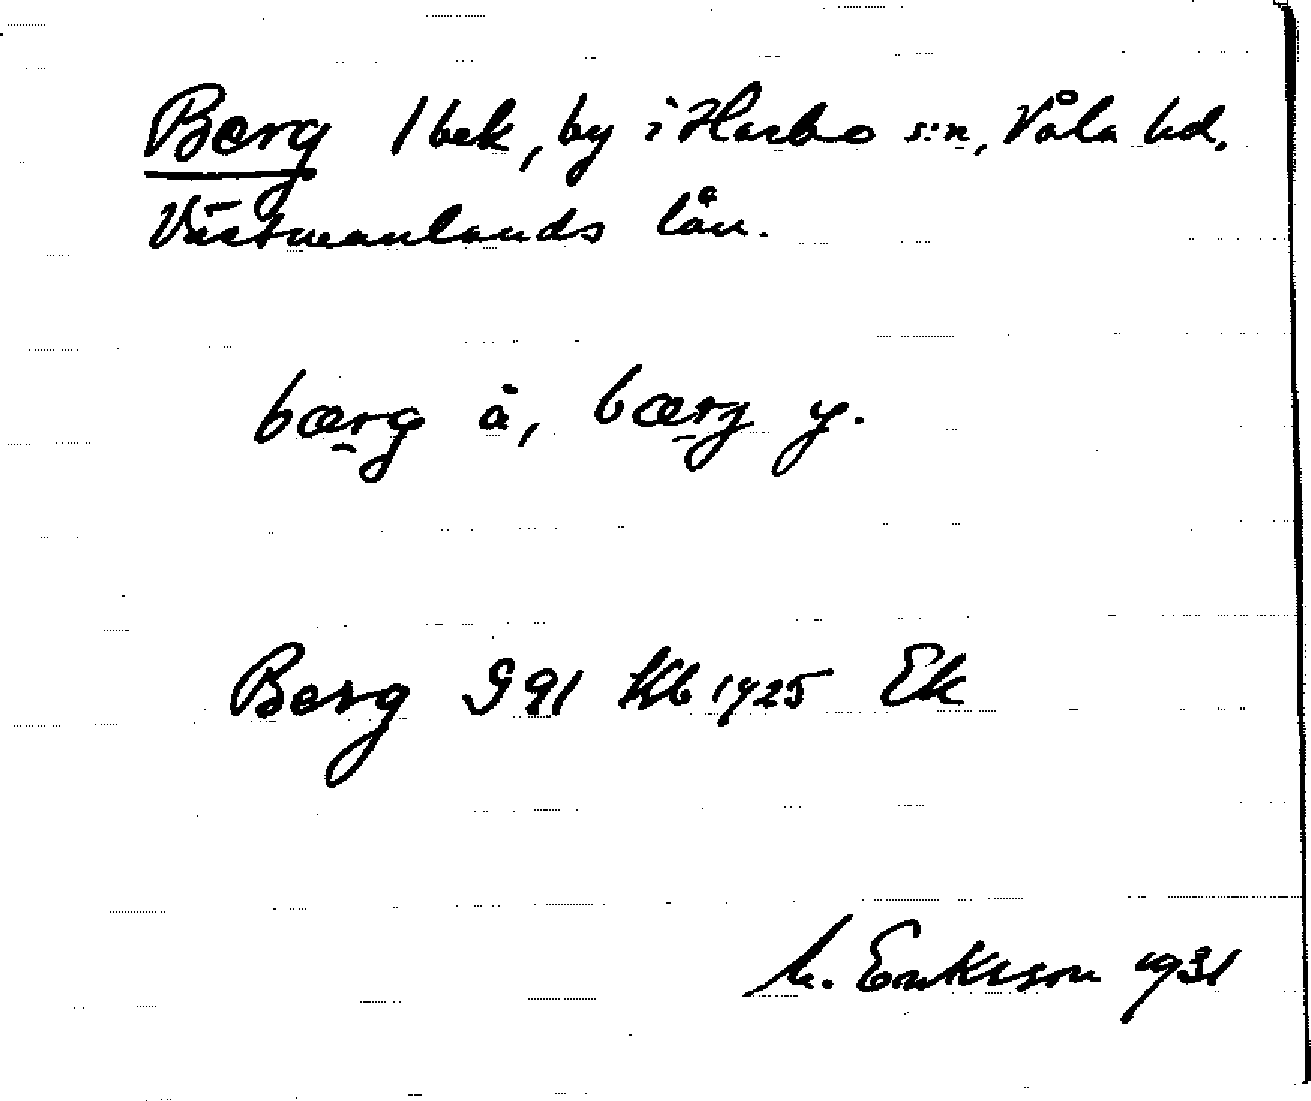 Berg 1 bek, by i Harbo s:n, Våla hd,
Västmanlands län.
bærg ä, bærg y.
Berg 991 Kb 1725 Ek
M. Eriksson 1931